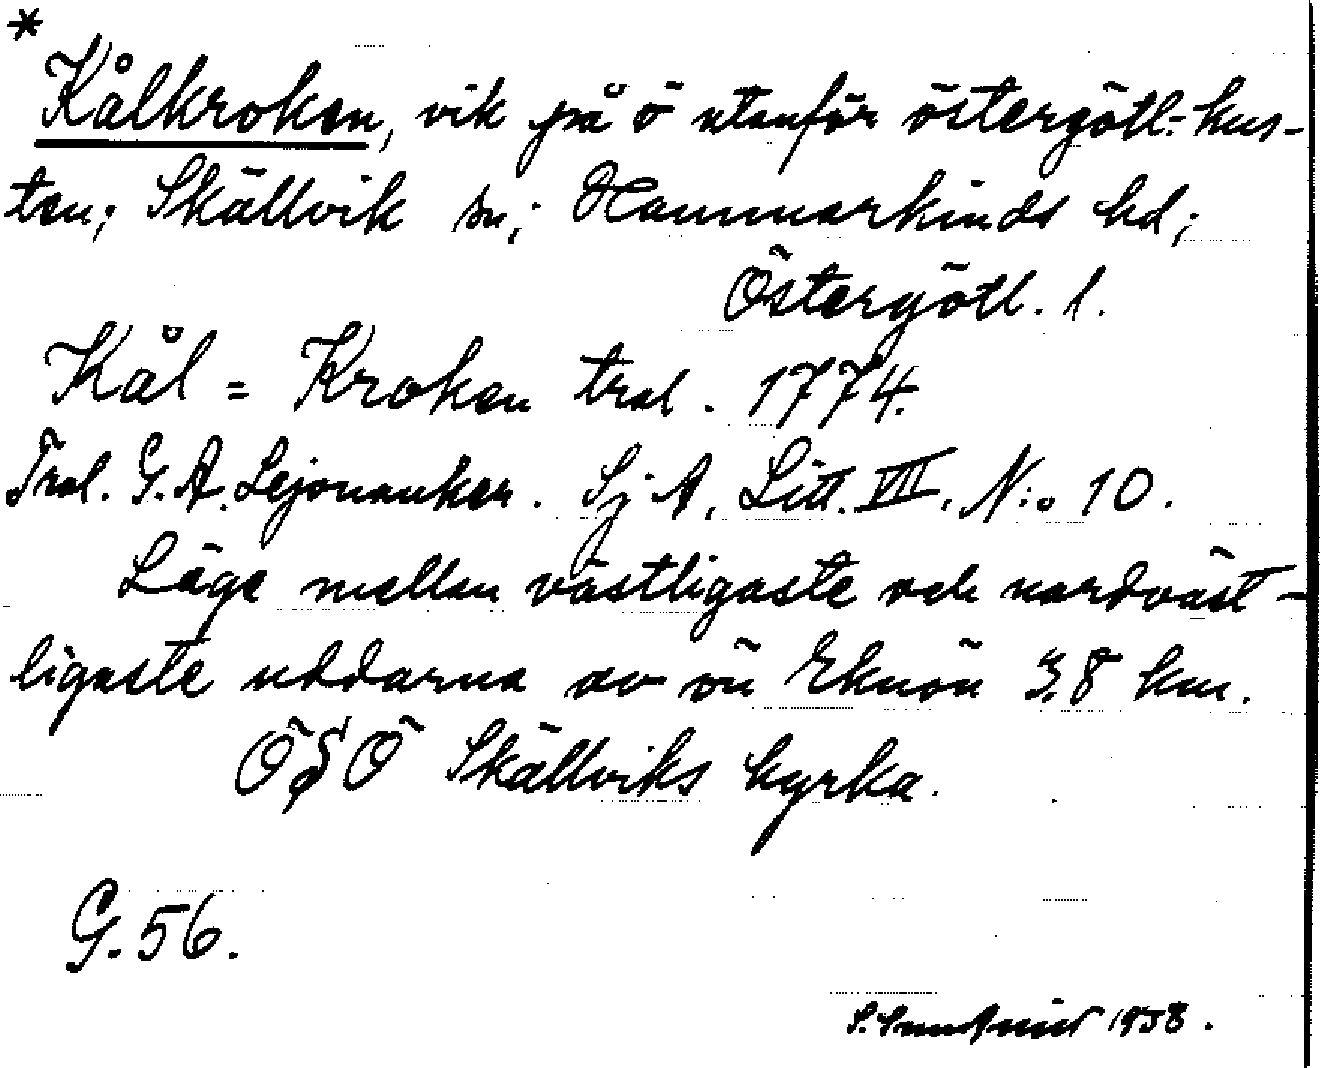 *
Kålkroken, vik på ö utanför östergötl. kus-
ten; Skällvik sn; Hammarkinds hd;
Östergötl. l.
Kål = Kroken tral. 1774.
Tral. G. A. Lejonanker. Sj A, Litt. VII. N:o 10.
Läge mellan västligaste och nordväst-
ligaste uddarna av ön Eknön 3,8 km.
ÖSÖ Skällviks kyrka.
G. 56.
1938.